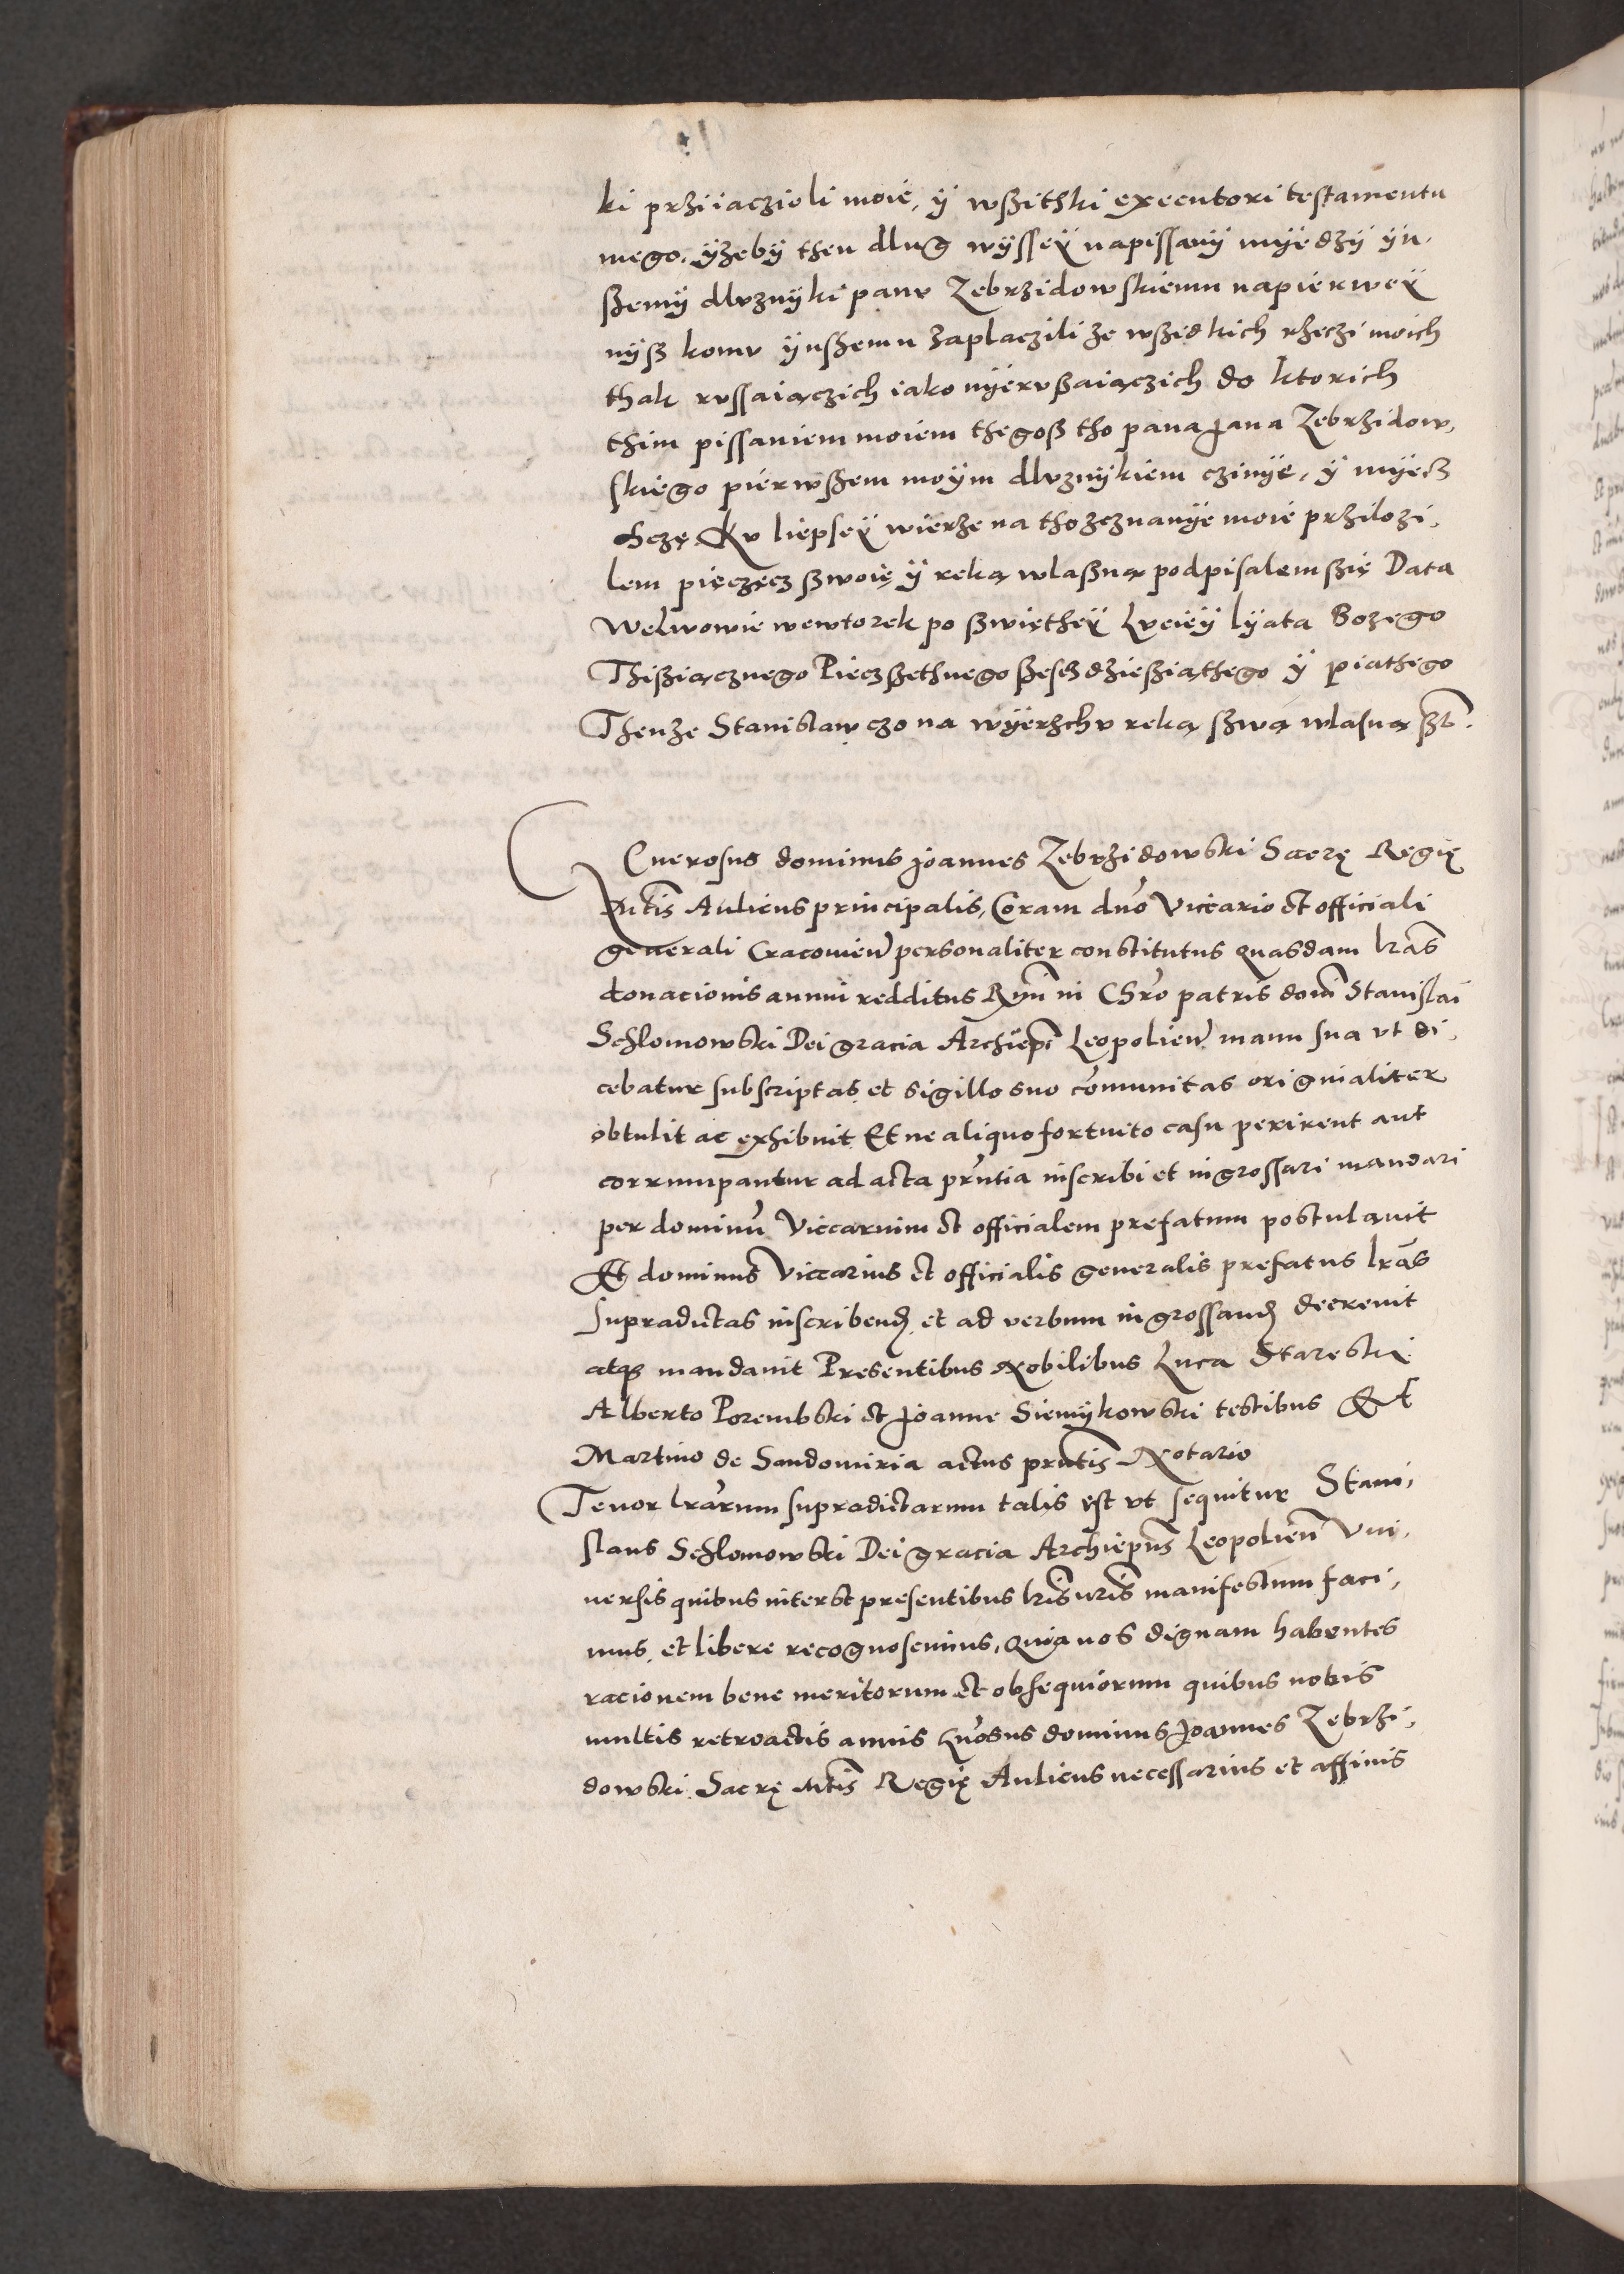 ki prziiaczioli moie, ÿ wßithki executori testamentu
mego, ÿzebÿ then dlug wÿsseÿ napissanÿ mÿedzÿ ÿn,
ßemÿ dlvznÿki panv Zebrzidowskiemu napierweÿ
nÿß komv ÿnßemu zaplaczili ze wßedkich rzeczi moich
thak rvssaiączich iako nÿervßaiączich do ktorich
thim pissaniem moiem thegoß tho pana Jana Zebrzidow,
skiego pierwßem moÿm dlvznÿkiem czinÿe, ÿ mÿecz
chczę. Kv liepseÿ wierze na tho zeznanÿe moie przilozi,
lem pieczęcz ßwoię ÿ reką wlaßną podpisalem ßię Data
Welwowie wewtorek po ßwiętheÿ Lucieÿ lÿata Bozego
Thißiącznego Pieczßethnego ßeschdzießiąthego ÿ piathego
Thenze Stanislaw czo na wÿerzchv reką ßwą wlasną
Generosus dominus Joannes Zebrzidowski Sacrę Regię
Mtis Aulicus principalis, Coram dno Vicario et officiali
generali Cracovien personaliter constitutus quasdam lras
donacionis annui redditus Rmi in Chro patris domi Stanislai
Schlomowski Dei gracia Archiepi Leopolien manu sua vt di,
cebatur subscriptas et sigillo suo comunitas originaliter
obtulit ac exhibuit Et ne aliquo fortuito casu perirent aut
corrumpantur ad acta prntia inscribi et ingrossari mandari
per dominu Viccarium et officialem prefatum postulauit
Et dominus Viccarius et officialis generalis prefatus lras
supradictas inscribend et ad verbum ingrossand decreuit
atq mandauit Presentibus Nobilibus Luca Starzeski
Alberto Porembski et Joanne Siemÿkowski testibus Et
Martino de Sandomiria actus prntis Notario
Tenor lrarum supradictarum talis est vt sequitur Stani,
slaus Schlomowski Dei gracia Archiepus Leopolien Vni,
uersis quibus interest presentibus lris nris manifestum faci,
mus et libere recognoscimus, Quia nos dignam habentes
racionem bene meritorum et obsequiorum quibus nobis
multis retroactis annis Gnosus dominus Joannes Zebrzi,
dowski Sacrę Mtis Regię Aulicus necessarius et affinis